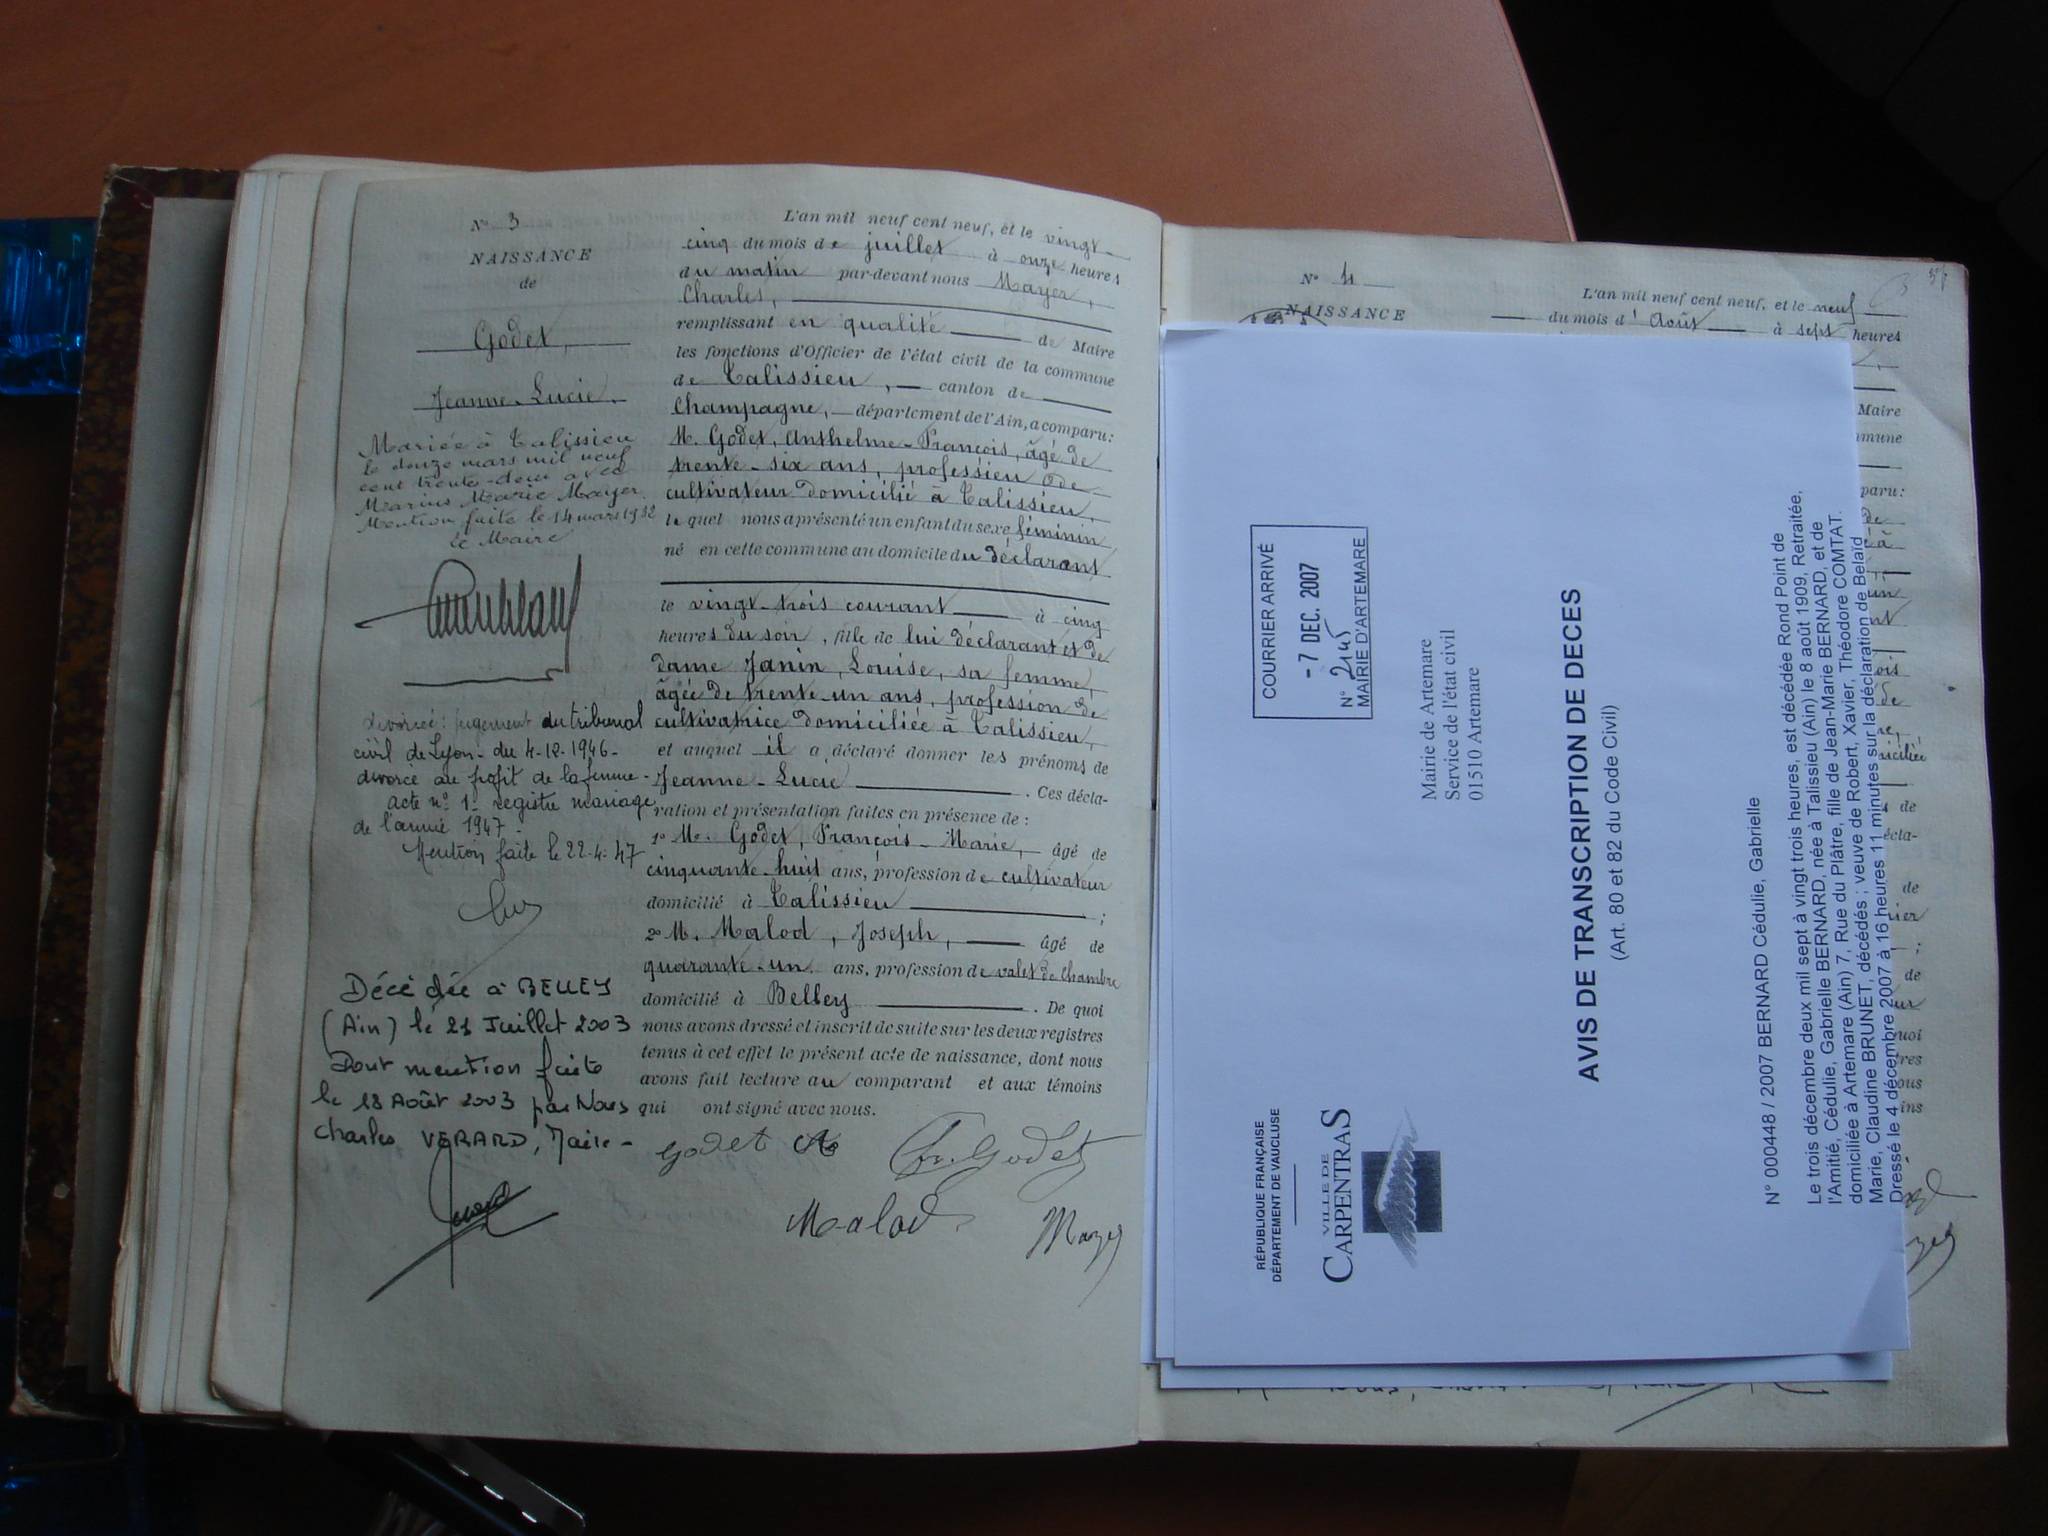 N° 3
NAISSANCE
de
Godet,
Jeanne-Lucie.
Mariée à Talissieu
le douze mars mil neuf
cent trente-deux avec
Marius Marie Mayer.
Mention faite le 14 mars 1932
Le Maire
divorcée: jugement du tribunal
civil de Lyon - du 4-12-1946 -
divorce au profit de la femme -
acte n° 1 - registre mariage
de l'année 1947 -
Mention faite le 22-4-47
Décédée à BELLEY
(Ain) le 21 Juillet 2003
Dont mention faite
le 18 Août 2003 par Nous
Charles VERARD, Maire -
L'an mil neuf cent neuf, et le vingt-
cinq du mois de juillet à onze heures
du matin par-devant nous Mayer,
Charles,
remplissant en qualité de Maire
les fonctions d'Officier de l'état civil de la commune
de Talissieu, canton de
Champagne, département de l'Ain, a comparu:
M. Godet, Anthelme-François, âgé de
trente-six ans, profession de
cultivateur domicilié à Talissieu,
lequel nous a présenté un enfant du sexe féminin
né en cette commune au domicile du déclarant
le vingt-trois courant à cinq
heures du soir, fille de lui déclarant et de
dame Janin, Louise, sa femme,
âgée de trente-un ans, profession de
cultivatrice domiciliée à Talissieu,
et auquel il a déclaré donner les prénoms de
Jeanne-Lucie. Ces décla-
ration et présentation faites en présence de :
1° M. Godet, François-Marie, âgé de
cinquante-huit ans, profession de cultivateur
domicilié à Talissieu ;
2° M. Malod, Joseph, âgé de
quarante-un ans, profession de valet de chambre
domicilié à Belley. De quoi
nous avons dressé et inscrit de suite sur les deux registres
tenus à cet effet le présent acte de naissance, dont nous
avons fait lecture au comparant et aux témoins
qui ont signé avec nous.
Godet Fr. Godet
Malod Mayer
N° 4
NAISSANCE
L'an mil neuf cent neuf, et le neuf
du mois d'Août à sept heures
Maire
RÉPUBLIQUE FRANÇAISE
DÉPARTEMENT DE VAUCLUSE
VILLE DE
CARPENTRAS
COURRIER ARRIVÉ
- 7 DEC. 2007
N°
MAIRIE D'ARTEMARE
Mairie de Artemare
Service de l'état civil
01510 Artemare
AVIS DE TRANSCRIPTION DE DECES
(Art. 80 et 82 du Code Civil)
N° 000448 / 2007 BERNARD Cédulie, Gabrielle
Le trois décembre deux mil sept à vingt trois heures, est décédée Rond Point de
l'Amitié, Cédulie, Gabrielle BERNARD, née à Talissieu (Ain) le 8 août 1909, Retraitée,
domiciliée à Artemare (Ain) 7, Rue du Plâtre, fille de Jean-Marie BERNARD, et de
Marie, Claudine BRUNET, décédés ; veuve de Robert, Xavier, Théodore COMTAT.
Dressé le 4 décembre 2007 à 16 heures 11 minutes sur la déclaration de Belaïd